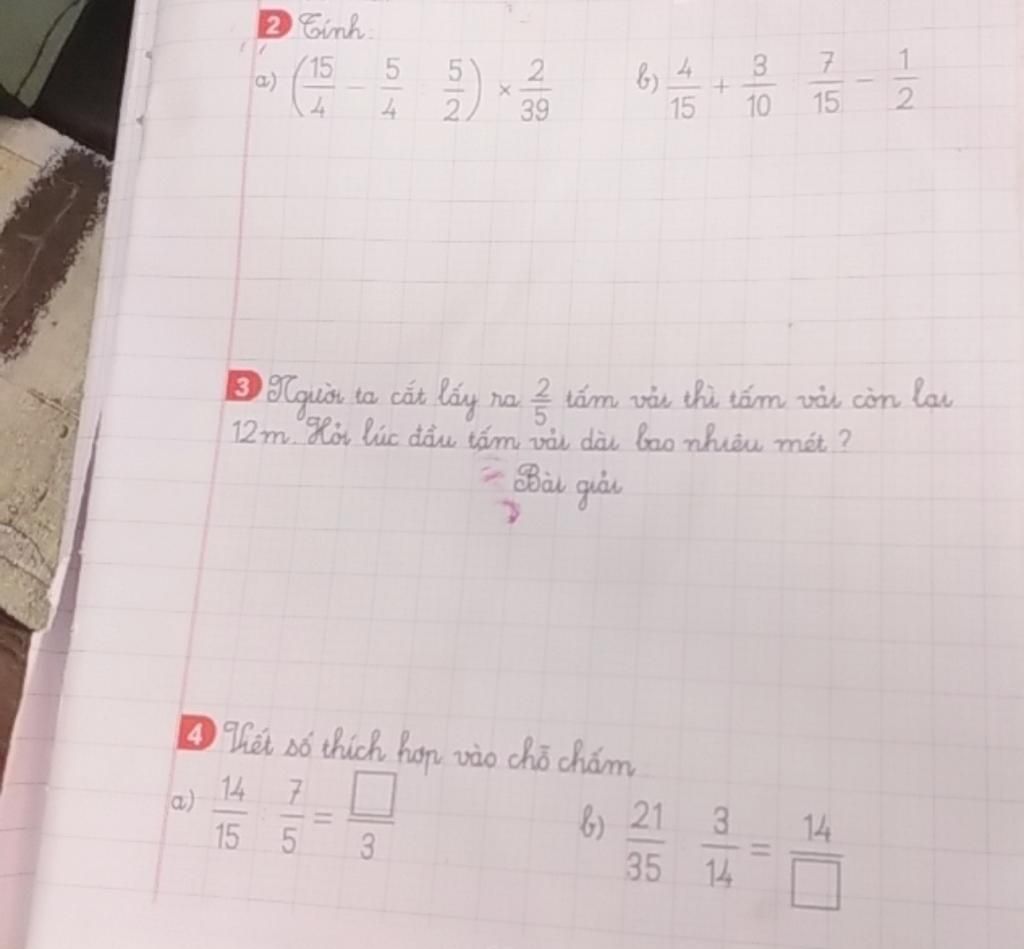 2 Tính.
a) (15/4 - 5/4 : 5/2) × 2/39 b) 4/15 + 3/10 : 7/15 - 1/2
3 Người ta cắt lấy ra 2/5 tấm vải thì tấm vải còn lại
12m. Hỏi lúc đầu tấm vải dài bao nhiêu mét?
Bài giải
4 Viết số thích hợp vào chỗ chấm
a) 14/15 : 7/5 = □/3 b) 21/35 : 3/14 = 14/□